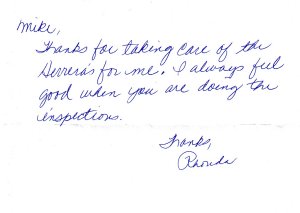 Mike,
Thanks for taking care of the
Herrera's for me. I always feel
good when you are doing the
inspections.
Thanks,
Rhonda